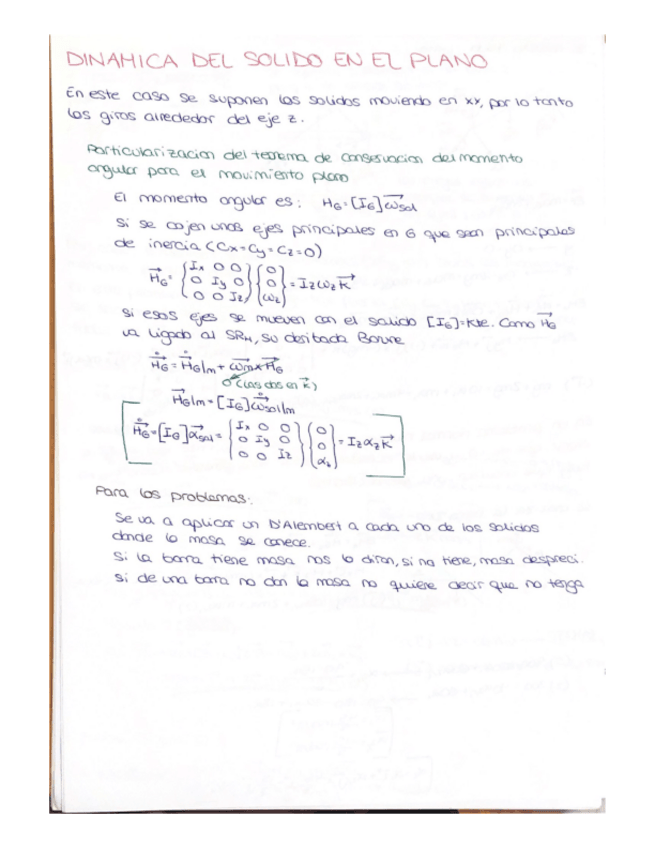 DINAMICA DEL SOLIDO EN EL PLANO
En este caso se suponen los solidos moviendo en xy, por lo tanto
los giros alrededor del eje z.
Particularizacion del teorema de conservacion del momento
angular para el movimiento plano
El momento angular es: H_G = [I_G] ω⃗_sol
Si se cojen unos ejes principales en G que sean principales
de inercia (Cx=Cy=Cz=0)
H⃗_G = {Ix 0 0 / 0 Iy 0 / 0 0 Iz} {0 / 0 / ωz} = Iz ωz K⃗
Si esos ejes se mueven con el solido [I_G]=Kte. Como H⃗_G
va ligado al SR_M, su deribada Boure
H⃗̇_G = H⃗̇_G|m + ω⃗m x H⃗_G
0 (las dos en K⃗)
H⃗̇_G|m = [I_G] ω⃗̇_sol|m
H⃗̇_G = [I_G] α⃗_sol = {Ix 0 0 / 0 Iy 0 / 0 0 Iz} {0 / 0 / αz} = Iz αz K⃗
Para los problemas:
Se va a aplicar un D'Alembert a cada uno de los solidos
donde la masa se conece.
Si la barra tiene masa nos lo diran, si no tiene, masa despreci.
Si de una barra no dan la masa no quiere decir que no tenga